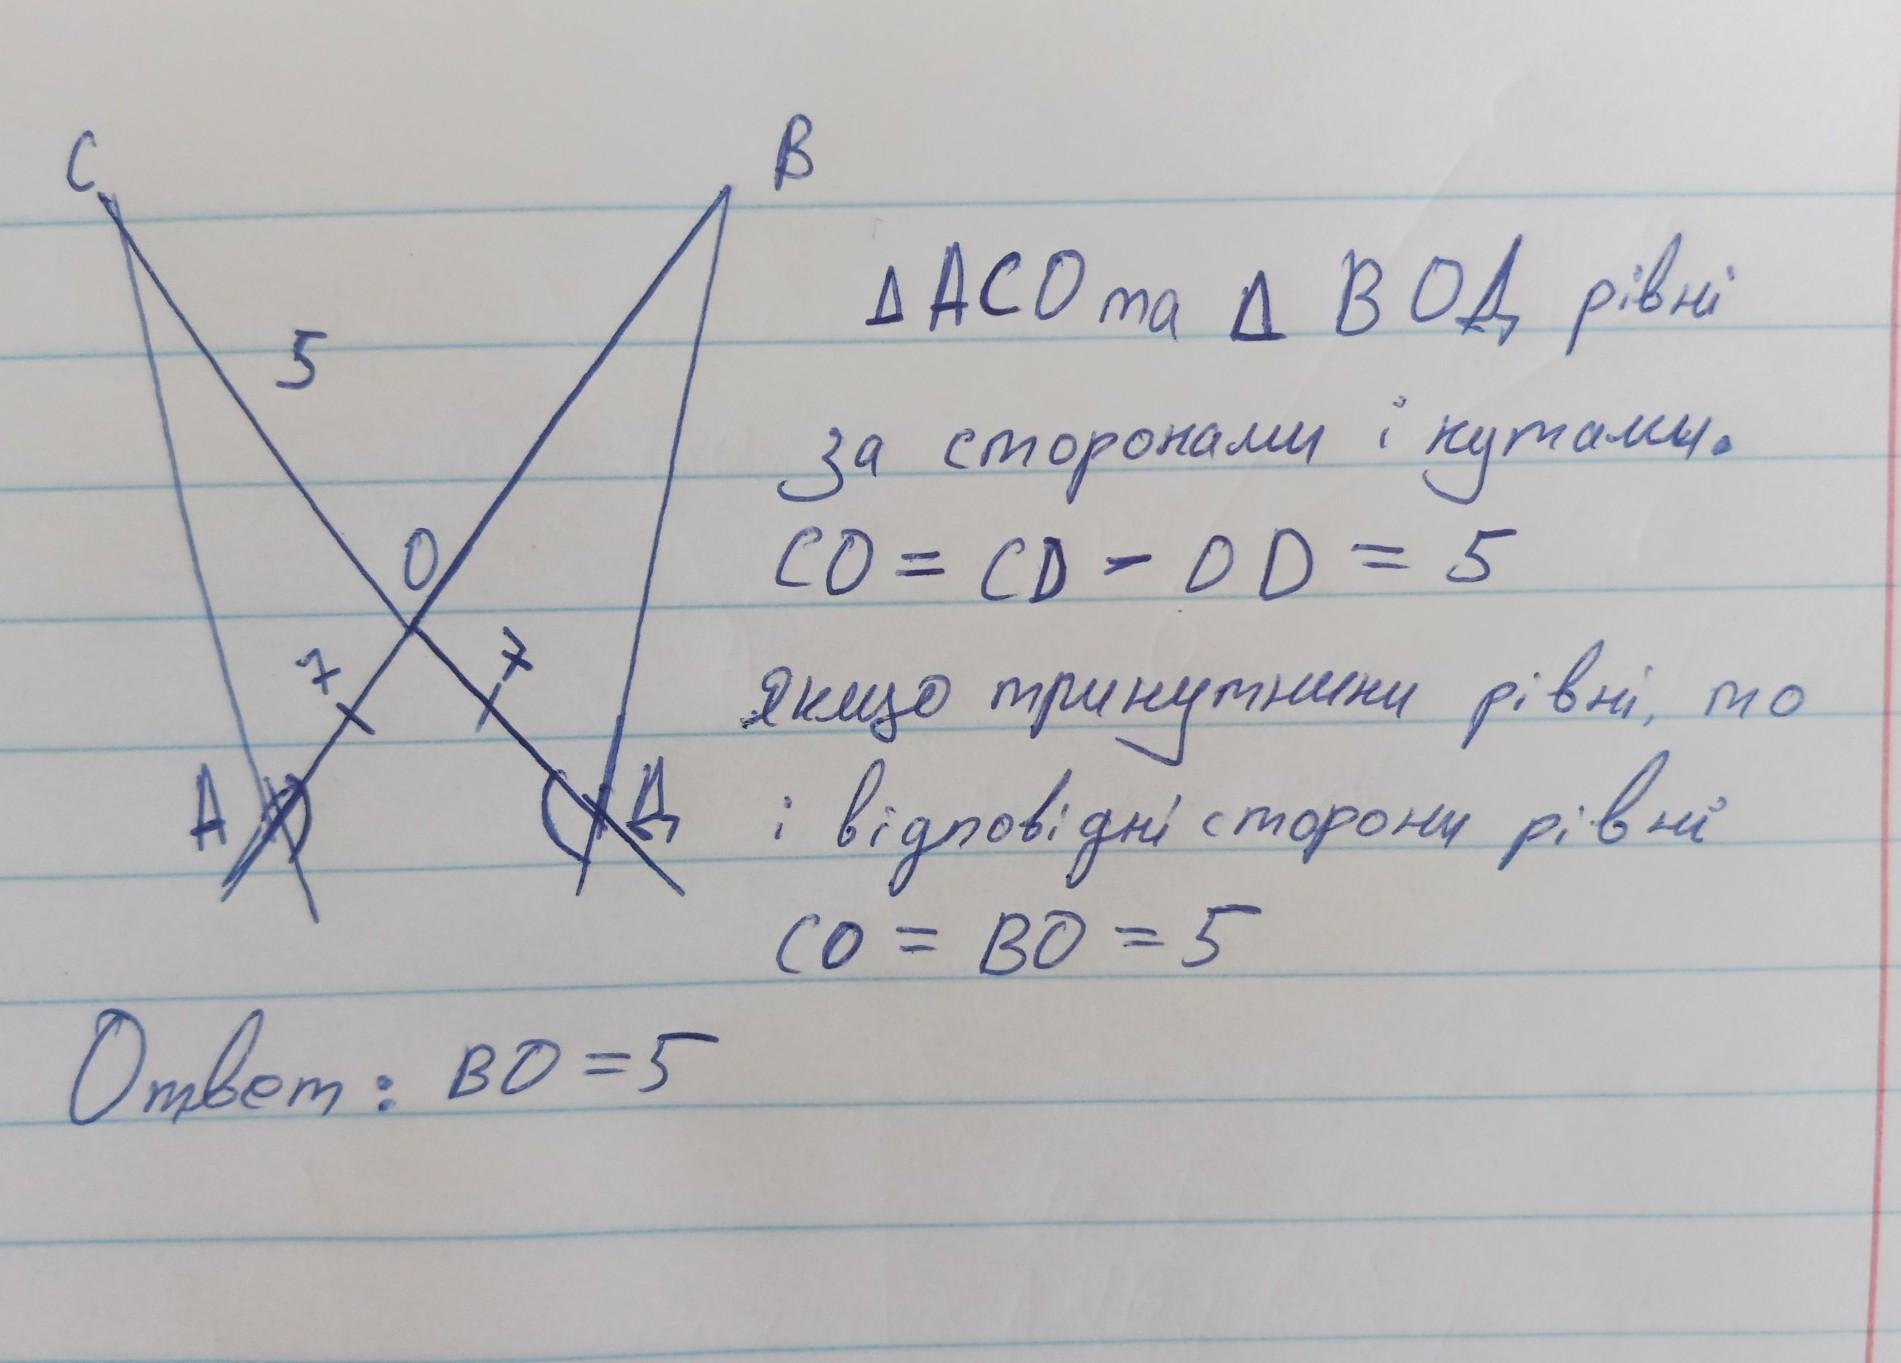 С
В
5
О
7
7
А
Д
∆ АСО та ∆ ВОД рівні
за сторонами і кутами.
CO = CD - OD = 5
Якщо трикутники рівні, то
і відповідні сторони рівні
CO = BO = 5
Ответ: BO = 5